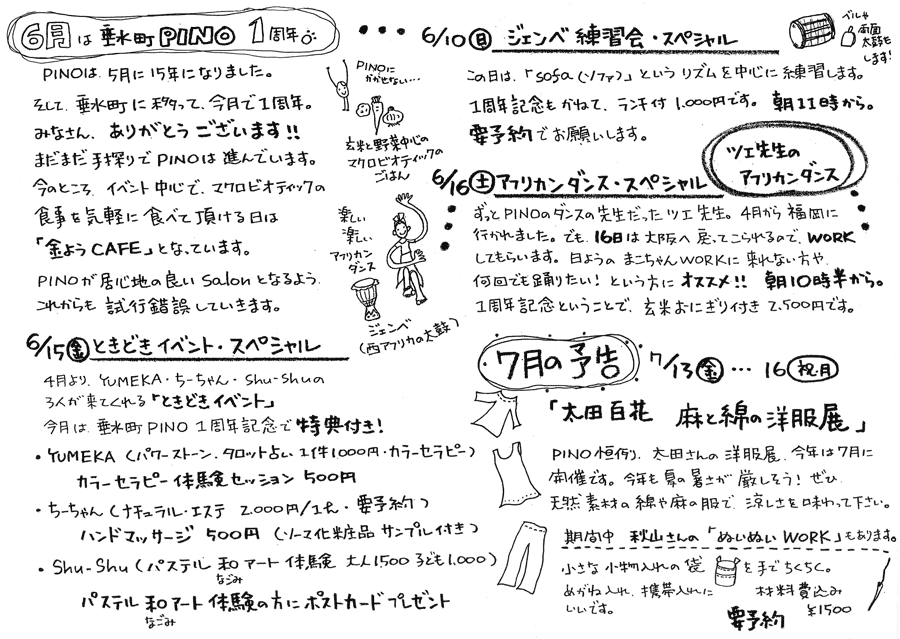 6月は 垂水町 PINO 1周年
PINOは、5月に15年になりました。
そして、垂水町に移って、今月で1周年。
みなさん、ありがとうございます!!
まだまだ手探りでPINOは進んでいます。
今のところ、イベント中心で、マクロビオティックの
食事を気軽に食べて頂ける日は
「金ようCAFE」となっています。
PINOが居心地の良いSalonとなるよう
これからも試行錯誤していきます。
PINOに
かかせない…
玄米と野菜中心の
マクロビオティックの
ごはん
楽しい
楽しい
アフリカン
ダンス
ジェンベ
(西アフリカの太鼓)
6/15 金 ときどきイベント・スペシャル
4月より、YUMEKA・ちーちゃん・Shu-Shuの
3人が来てくれる「ときどきイベント」
今月は、垂水町PINO 1周年記念で特典付き!
・YUMEKA (パワーストーン、タロット占い 1件1,000円・カラーセラピー)
カラーセラピー体験セッション 500円
・ちーちゃん (ナチュラル・エステ 2,000円/1h・要予約)
ハンドマッサージ 500円 (ソーマ化粧品 サンプル付き)
・Shu-Shu (パステル和アート体験 大人1500 子ども1,000)
なごみ
パステル和アート体験の方にポストカードプレゼント
なごみ
6/10 日 ジェンベ練習会・スペシャル
ベルや
両面
太鼓も
します!
この日は、「sofa(ソファ)」というリズムを中心に練習します。
1周年記念もかねて、ランチ付 1,000円です。 朝11時から。
要予約でお願いします。
ツエ先生の
アフリカンダンス
6/16 土 アフリカンダンス・スペシャル
ずっとPINOのダンスの先生だったツエ先生。4月から福岡に
行かれました。でも、16日は大阪へ戻ってこられるので、WORK
してもらいます。日ようのまこちゃんWORKに来れない方や、
何回でも踊りたい!という方にオススメ!! 朝10時半から。
1周年記念ということで、玄米おにぎり付き 2,500円です。
7月の予告 7/13 金 … 16 祝・月
「太田百花 麻と綿の洋服展」
PINO恒例、太田さんの洋服展、今年は7月に
開催です。今年も夏の暑さが厳しそう! ぜひ、
天然素材の綿や麻の服で、涼しさを味わって下さい。
期間中 秋山さんの「ぬいぬいWORK」もあります。
小さな小物入れの袋 を手でちくちく。
めがね入れ、携帯入れに
いいです。
材料費込み
¥1500
要予約